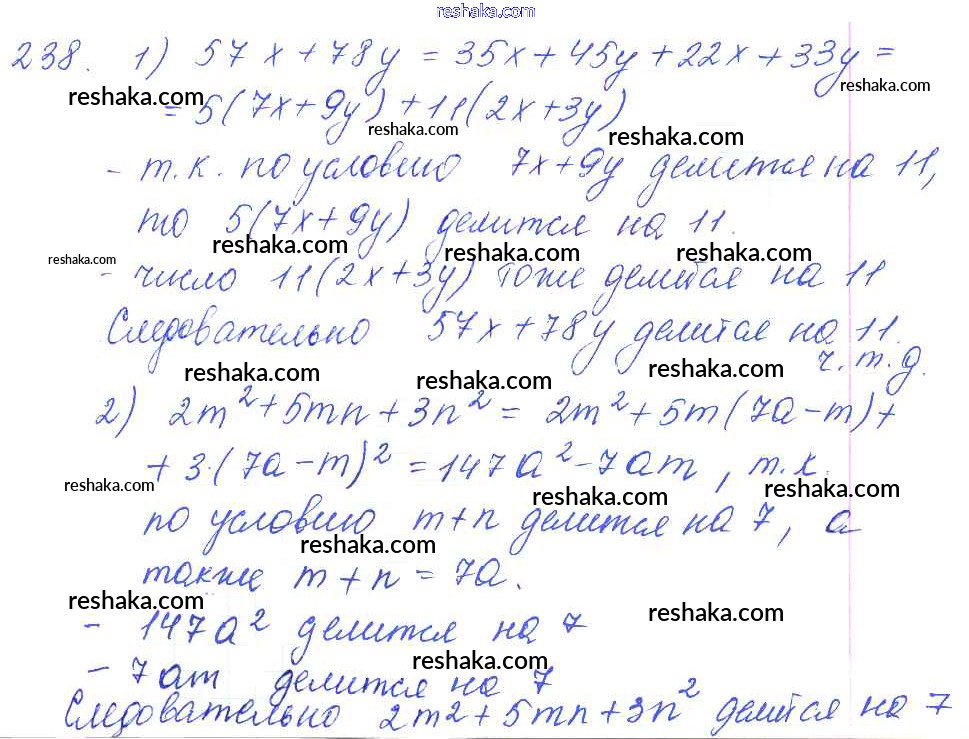 reshaka.com
238. 1) 57x + 78y = 35x + 45y + 22x + 33y =
reshaka.com
reshaka.com
= 5(7x + 9y) + 11(2x + 3y)
reshaka.com
reshaka.com
- т.к. по условию 7x + 9y делится на 11,
то 5(7x + 9y) делится на 11.
reshaka.com
reshaka.com
reshaka.com
reshaka.com
- число 11(2x + 3y) тоже делится на 11
Следовательно 57x + 78y делится на 11.
ч.т.д.
reshaka.com
reshaka.com
reshaka.com
2) 2m² + 5mn + 3n² = 2m² + 5m(7a - m) +
+ 3·(7a - m)² = 147a² - 7am, т.к.
reshaka.com
reshaka.com
reshaka.com
по условию m + n делится на 7, а
reshaka.com
также m + n = 7a.
reshaka.com
reshaka.com
- 147a² делится на 7
reshaka.com
- 7am делится на 7
Следовательно 2m² + 5mn + 3n² делится на 7